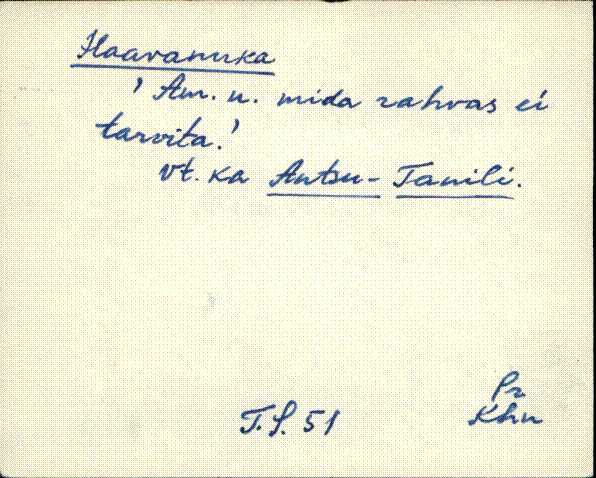 Haavanuka
' Am. n. mida rahvas ei
tarvita.'
vt. ka Antsu- Tanili.
T.S. 51
Pr
Khn